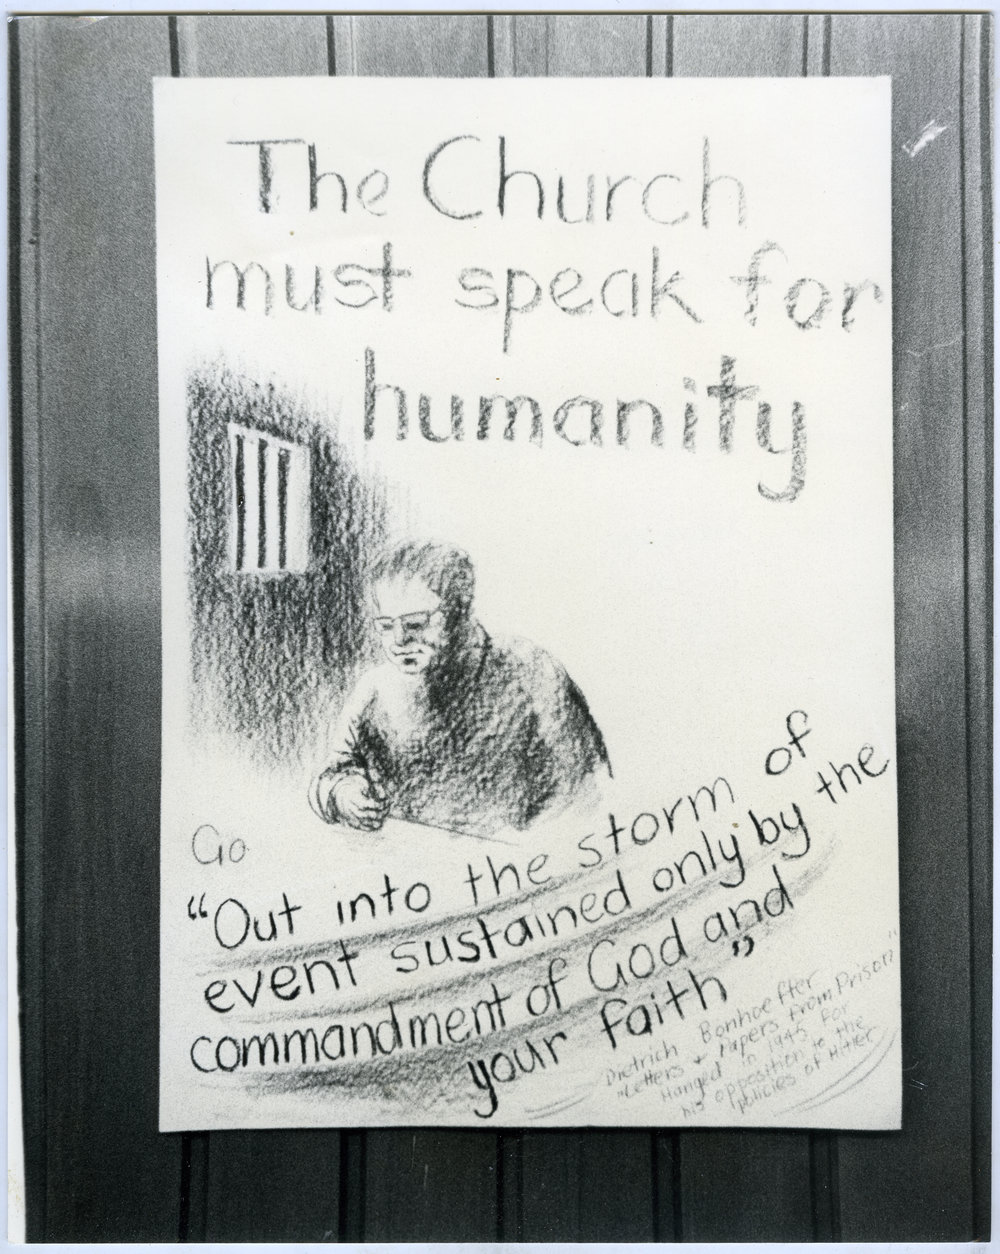 The Church
must speak for
humanity
Go
"Out into the storm of
event sustained only by the
commandment of God and
your faith"
Dietrich Bonhoeffer
"Letters + Papers from Prison"
Hanged in 1945 for
his opposition to the
policies of Hitler